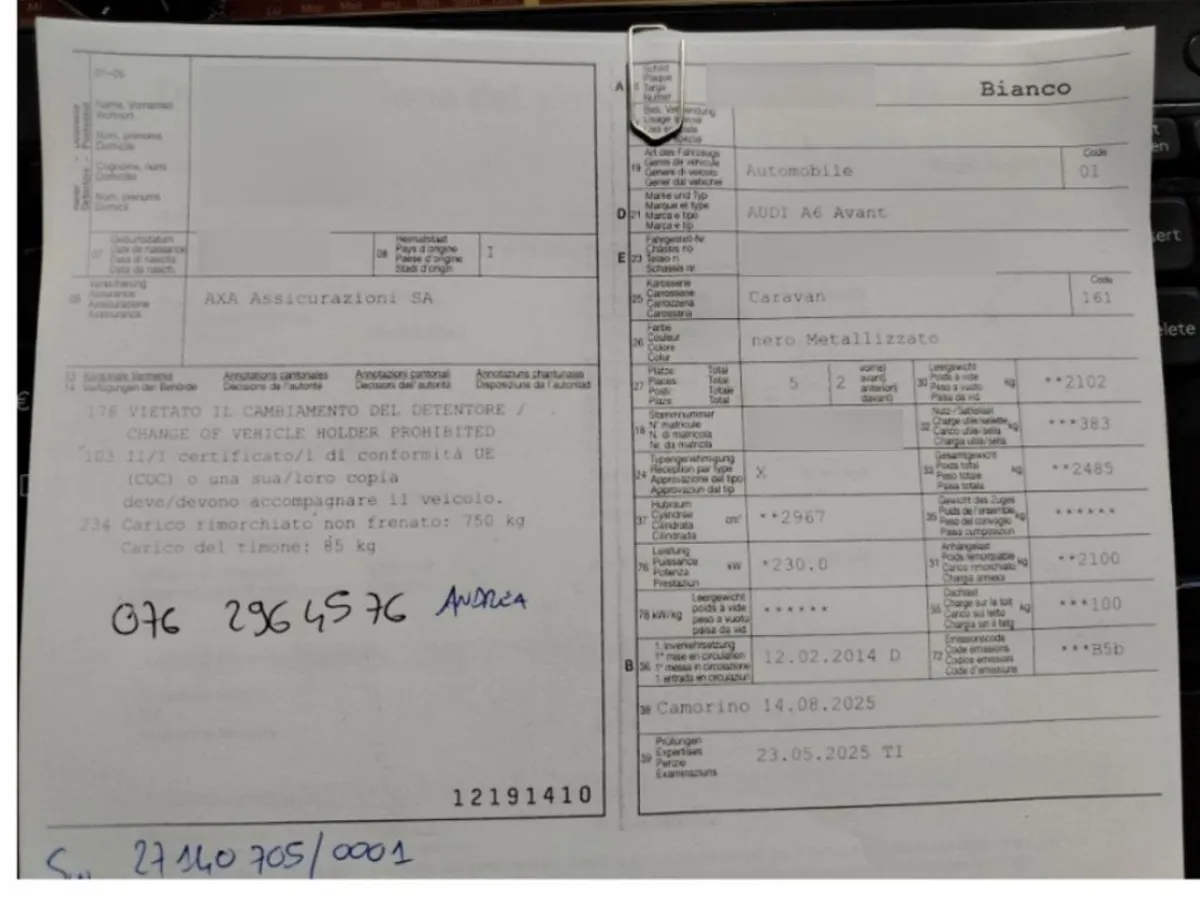 01-06
Name, Vornamen
Wohnort
Nom, prénoms
Domicile
Cognome, nomi
Domicilio
Num, prenums
Domicil
07 Geburtsdatum
Date de naissance
Data di nascita
Data da nasch.
08 Heimatstaat
Pays d'origine
Paese d'origine
Stadi d'origin
I
09 Versicherung
Assurance
Assicurazione
Assicuranza
AXA Assicurazioni SA
13 Kantonale Vermerke Annotations cantonales Annotazioni cantonali Annotaziuns chantunalas
14 Verfügungen der Behörde Décisions de l'autorité Decisioni dell'autorità Disposiziuns da l'autoritad
178 VIETATO IL CAMBIAMENTO DEL DETENTORE /
CHANGE OF VEHICLE HOLDER PROHIBITED
103 Il/I certificato/i di conformità UE
(COC) o una sua/loro copia
deve/devono accompagnare il veicolo.
234 Carico rimorchiato non frenato: 750 kg
Carico del timone: 85 kg
076 296 45 76 ANDREA
12191410
27 140 705/0001
A Schild
Plaque
Targa
Numer
Bianco
19 Art des Fahrzeugs
Genre de véhicule
Genere di veicolo
Gener dal vehichel
Automobile
Code
01
D 21 Marke und Typ
Marque et type
Marca e tipo
Marca e tip
AUDI A6 Avant
E 23 Fahrgestell-Nr
Châssis no
Telaio n
Schassis nr
25 Karosserie
Carrosserie
Carrozzeria
Carossaria
Caravan
Code
161
26 Farbe
Couleur
Colore
Colur
nero Metallizzato
27 Plätze Total
Places Total
Posti Totale
Plazs Total
5
2
vorne)
avant)
anteriori)
davant)
30 Leergewicht
Poids à vide
Peso a vuoto
Paisa da vid
kg
**2102
18 Stammnummer
N° matricule
N. di matricola
Nr. da matricla
32 Nutz-/Sattellast
Charge utile/sellette
Carico utile/sella
Chargia utila/sella
kg
***383
24 Typengenehmigung
Réception par type
Approvazione del tipo
Approvaziun dal tip
X
33 Gesamtgewicht
Poids total
Peso totale
Paisa totala
kg
**2485
37 Hubraum
Cylindrée
Cilindrata
Cilindrada
cm³
**2967
35 Gewicht des Zuges
Poids de l'ensemble
Peso del convoglio
Paisa cumposiziun
kg
******
76 Leistung
Puissance
Potenza
Prestaziun
kW
*230.0
31 Anhängelast
Poids remorquable
Carico rimorchiato
Chargia annexa
kg
**2100
78 kW/kg
Leergewicht
poids à vide
peso a vuoto
paisa da vid
******
55 Dachlast
Charge sur le toit
Carico sul tetto
Chargia sin il tetg
kg
***100
B 36 1. Inverkehrsetzung
1re mise en circulation
1a messa in circolazione
1. entrada en circulaziun
12.02.2014 D
72 Emissionscode
Code émissions
Codice emissioni
Code d'emissiuns
***B5b
38 Camorino 14.08.2025
39 Prüfungen
Expertises
Perizie
Examinaziuns
23.05.2025 TI